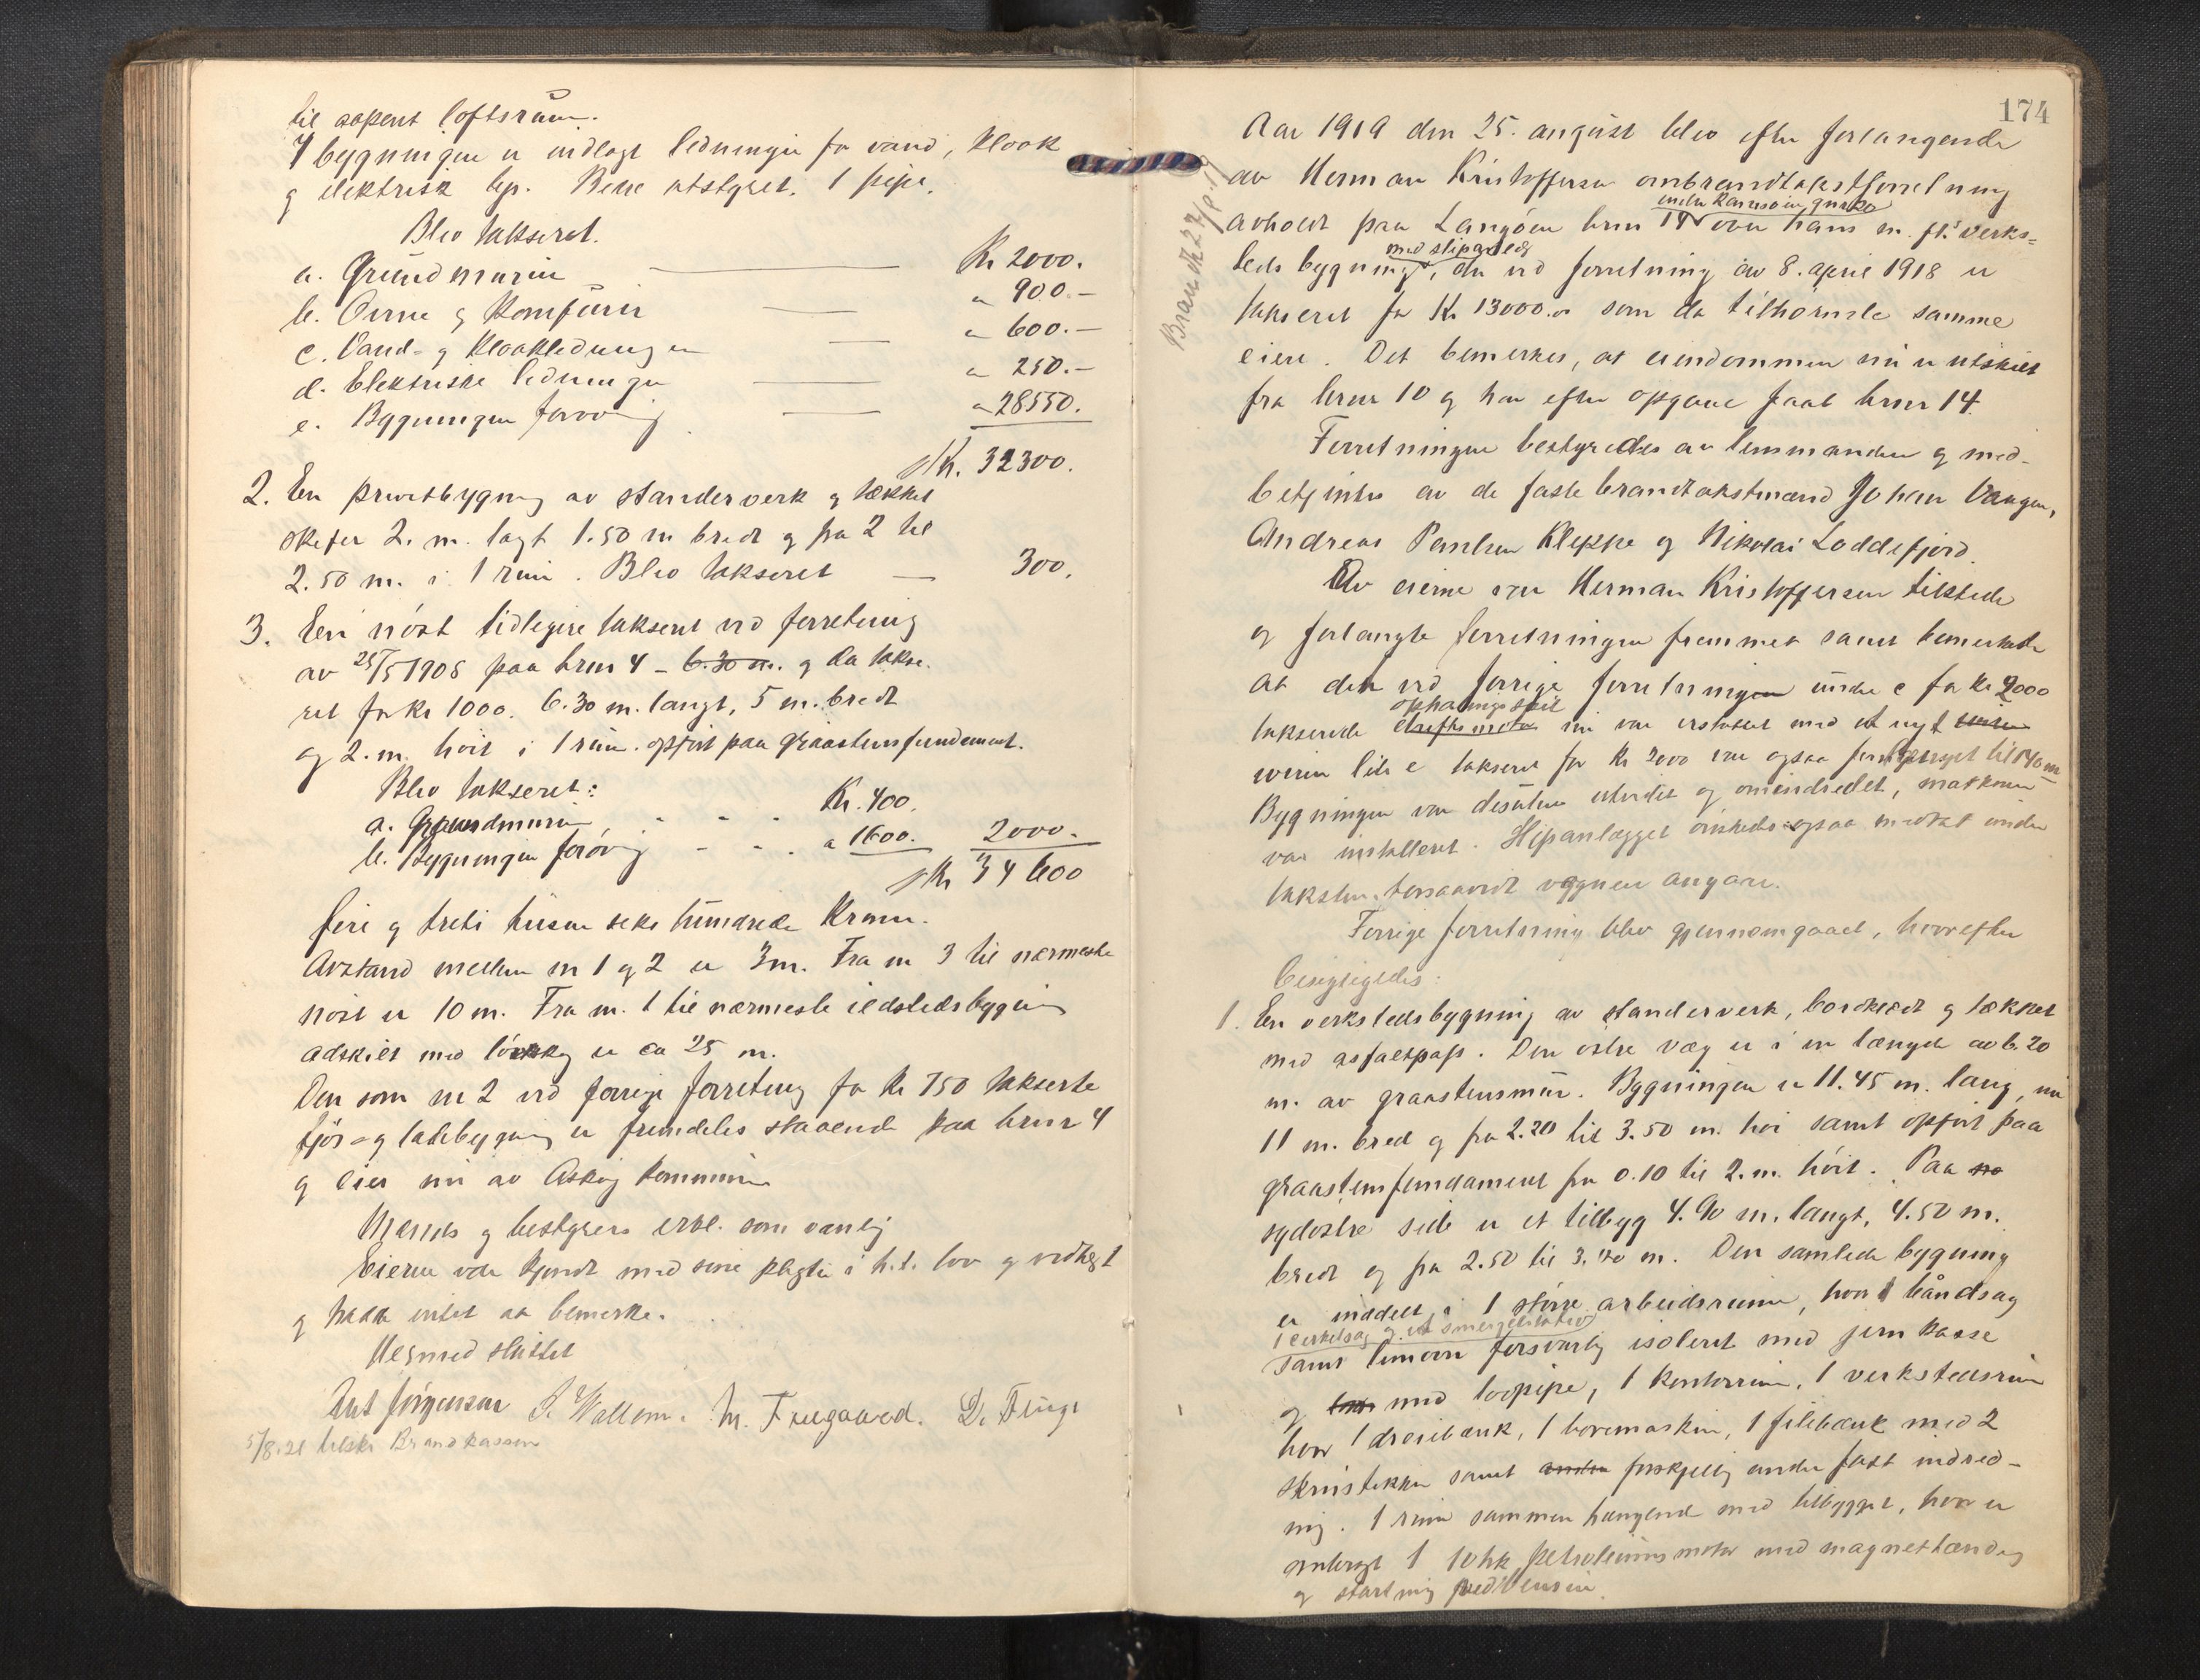 til aapent loftsrum.
I bygningen er indlagt ledninger for vand, kloak
og elektrisk lys. Bedre utstyret. 1 pipe.
Blev takseret.
a. Grundmuren Kr 2000.
b. Ovne og Komfurer " 900.-
c. Vand- og Kloakledningen " 600.-
d. Elektriske ledninger " 250.-
e. Bygningen forøvrig " 28550.
Kr. 32300.
2. En privetbygning av standerverk og tækket
skifer 2. m. langt 1.50 m bredt og fra 2 til
2.50 m. i 1 rum. Blev takseret — 300.
3. En nöst tidligere takseret ved forretning
av 25/5 1908 paa brnr 4 - 6.30 m. og da takse-
ret for kr 1000. 6.30 m. langt, 5 m. bredt
og 2. m. höit i 1 rum. opfört paa graastensfundament.
Blev takseret:
a. Grundmuren - - - Kr. 400.
b. Bygningen forövrig - - - " 1600. 2000.
Kr 34600
fire og treti tusen seks hundrede Kroner.
Avstand mellem nr 1 og 2 er 3m. Fra nr 3 til nærmeste
nöst er 10 m. Fra nr. 1 til nærmeste ildstedsbygning
adskilt med lövskog er ca 25 m.
Den som nr 2 ved forrige forretning for kr 750 takserte
fjös- og ladebygning er fremdeles staaende paa brnr 4
og eies nu av Asköy kommune
Mænds og bestyrers erkl. som vanlig
Eieren var kjendt med sine pligter i h. t. lov og vedtegt
og hadde intet at bemerke.
Hermed sluttet
Ant Jörgensen S. Wallem. M. Fruegaard. D. Fluge
5/8.21 tilskr Brandkassen
174
Brandk 27/8.19
Aar 1919 den 25. august blev efter forlangende
av Herman Kristoffersen ombrandtakstforretning
under Ramsöen gnr 20
avholdt paa Langöen brnr 14 over hans m. fl.s verks-
med slipanlæg
tedsbygning, der ved forretning av 8. april 1918 er
takseret for Kr 13000.00 som da tilhörende samme
eiere. Det bemerkes, at eiendommen nu er utskilt
fra brnr 10 og har efter opgave faat brnr 14.
Forretningen bestyredes av lensmanden og med-
betjentes av de faste brandtakstmænd Johan Vaagen,
Andreas Paulsen Kleppe og Nikolai Loddefjord.
Av eierne var Herman Kristoffersen tilstede
og forlangte forretningen fremmet samt bemerkede
at den ved forrige forretningen under c for kr 2000
ophalingsspil
takserede nu var erstattet med et nyt
var ogsaa
Bygningen var desuten utvidet og omindredet,
var installeret. Slipanlægget önskedes ogsaa medtat under
taksten, forsaavidt angaar.
Forrige forretning blev gjennemgaaet, hvorefter
besigtigedes:
1. En verkstedsbygning av standerverk, bordklædt og tækket
med asfaltpap. Den östre væg er i en længde av 6.20
m. av graastensmur. Bygningen er 11.45 m. lang,
11 m. bred og fra 2.20 til 3.50 m. höi samt opfört paa
graastensfundament fra 0.10 til 2. m. höit. Paa
sydöstre side er et tilbyg 4.90 m. langt, 4.50 m.
bredt og fra 2.50 til 3.40 m. Den samlede bygning
er inddelt i 1 större arbeidsrum, hvor 1 båndsag
1 cirkelsag og et
samt limovn forsvarlig isoleret med jern kasse
og med löspipe, 1 kontorrum, 1 verkstedsrum
hvor 1 dreiebænk, 1 boremaskin, 1 filebænk med 2
skrustikker samt forskjellig andet fast indred-
ning. 1 rum sammenhængende med tilbygget, hvor er
anbragt 1 10 hk petroleumsmotor med magnettænding
og startning med bensin.